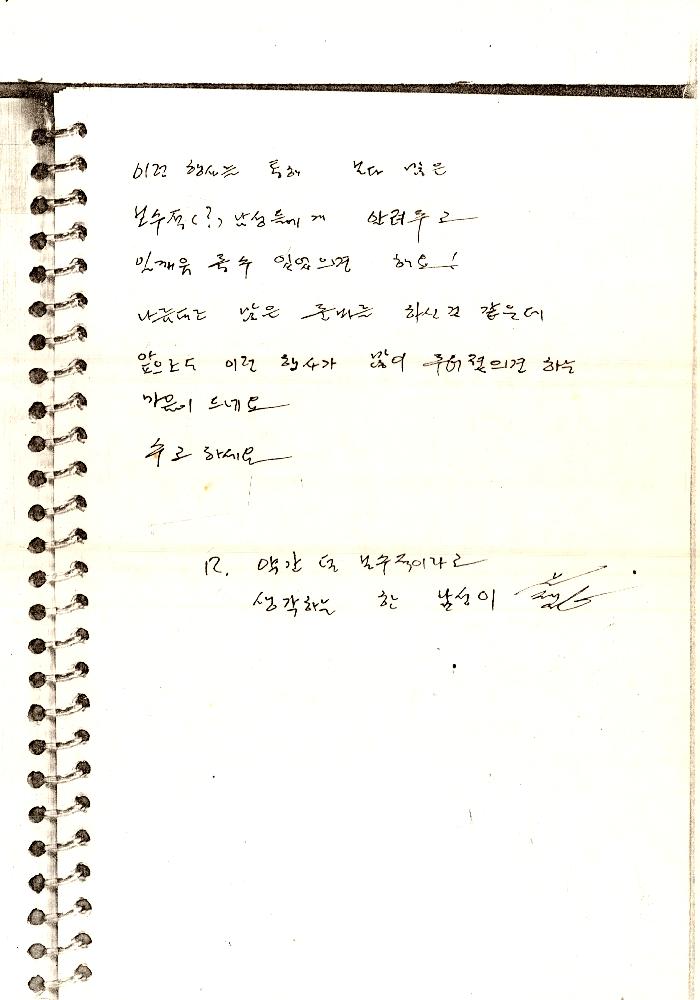 이런 행사를 통해 보다 많은
보수적(?) 남성들에게 알려두고
일깨워 줄 수 있었으면 해요!
나름대로 많은 준비를 하신 것 같은데
앞으로도 이런 행사가 많이 루어졌으면 하는
마음이 드네요
수고하세요
12. 약간 덜 보수적이라고
생각하는 한 남성이